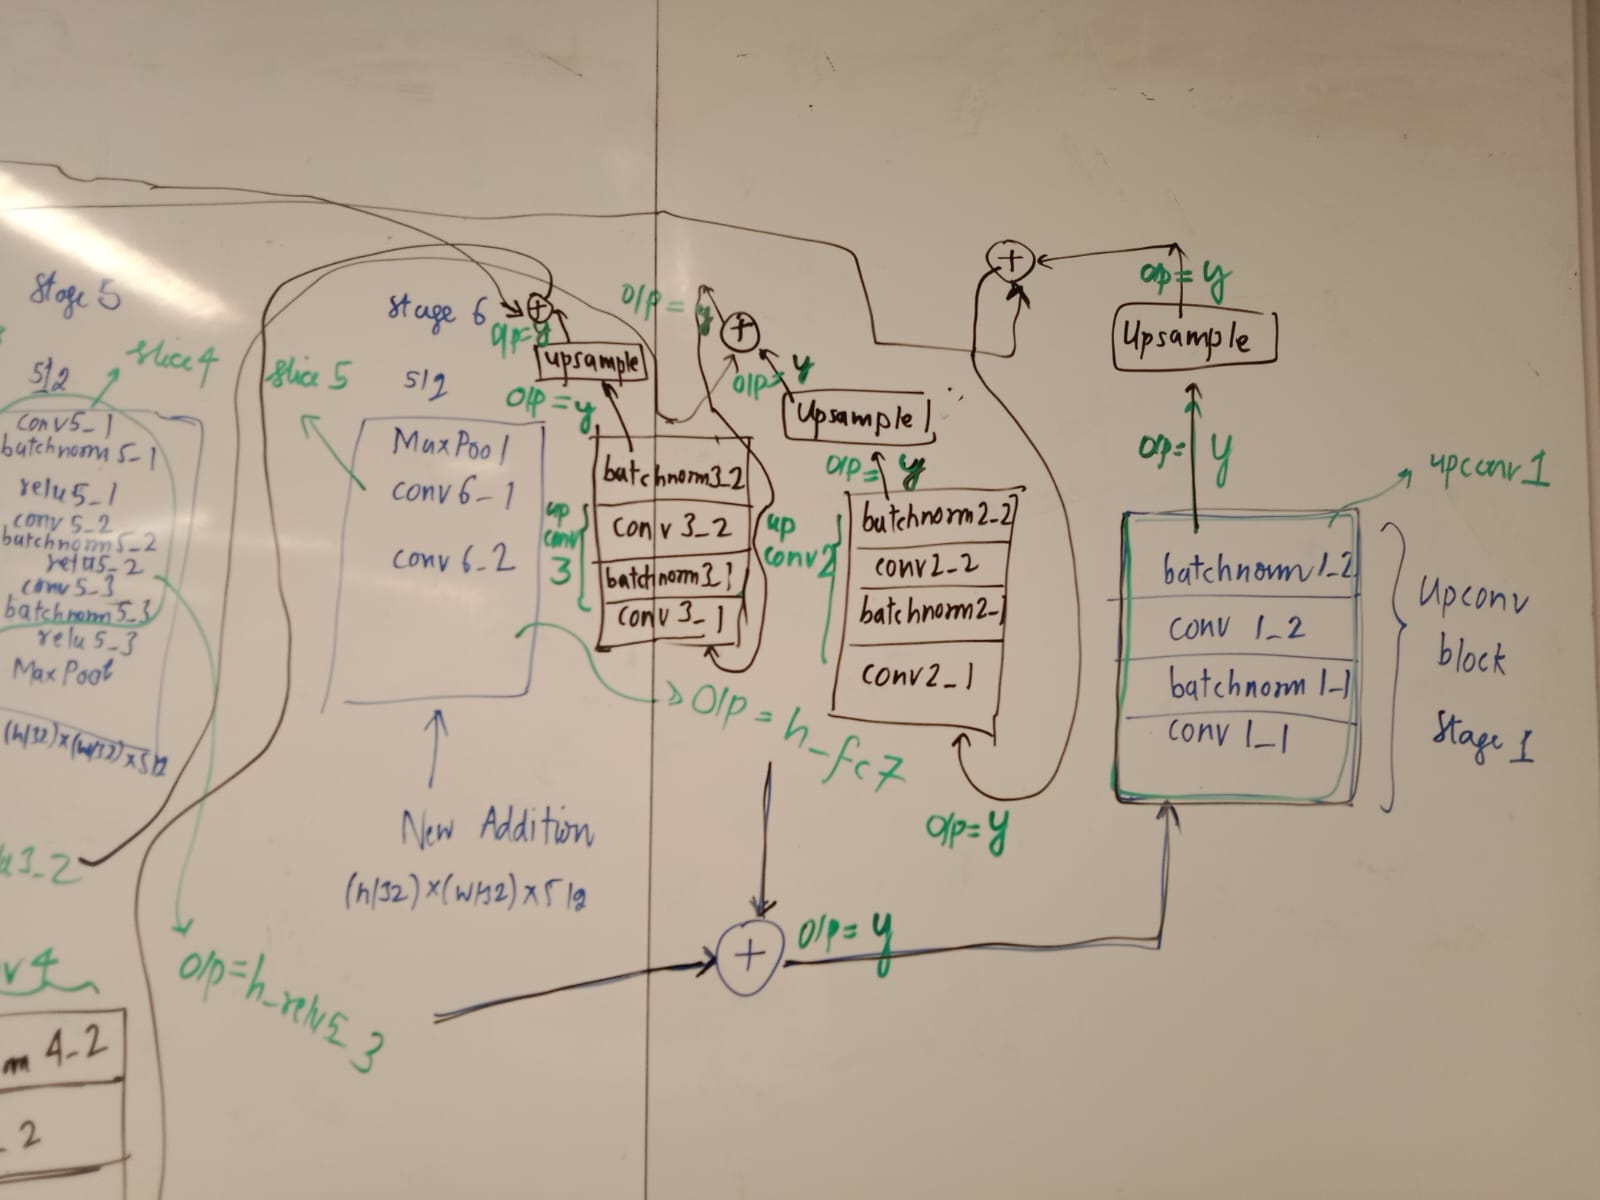 Stage 5
512
slice 4
conv5_1
batchnorm5_1
relu5_1
conv5_2
batchnorm5_2
relu5_2
conv5_3
batchnorm5_3
relu5_3
MaxPool
(h/32)×(w/32)×512
3_2
4
m 4_2
_2
O/P=h_relu5_3
Stage 6
slice 5
512
MaxPool
conv6_1
conv6_2
New Addition
(h/32)×(w/32)×512
O/P = h_fc7
+
O/P=y
upsample
O/P=y
batchnorm3_2
conv3_2
batchnorm3_1
conv3_1
up
conv
3
O/P= y
+
O/P=y
Upsample
O/P= y
batchnorm2_2
conv2_2
batchnorm2_1
conv2_1
up
conv2
O/P=y
+
O/P= y
Upsample
O/P= y
upconv1
batchnorm1_2
conv 1_2
batchnorm1_1
conv 1_1
Upconv
block
Stage 1
+
O/P= y